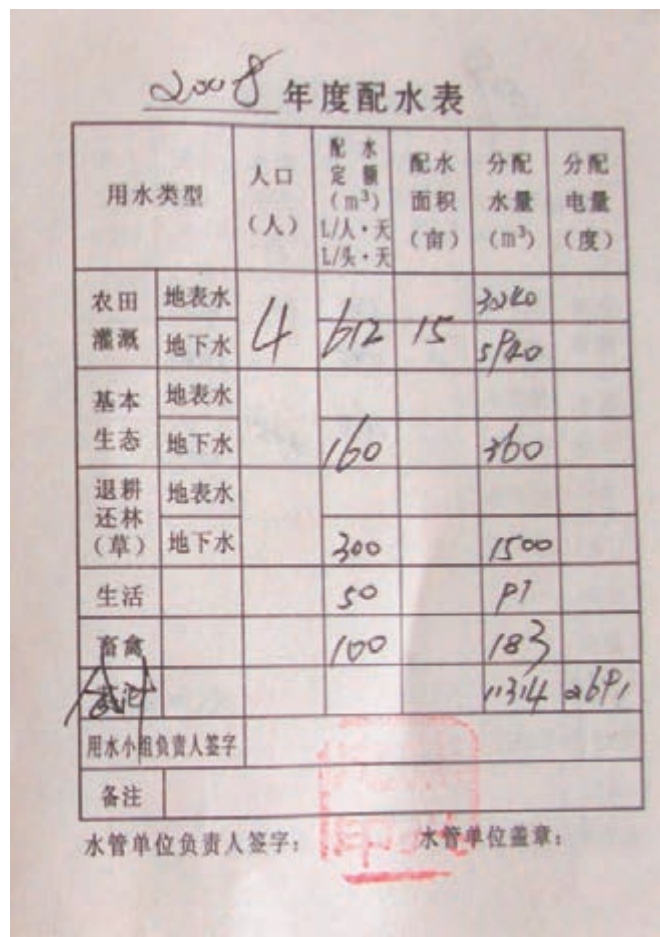 2008 年度配水表
用水类型 人口（人） 配水定额（m³）L/人·天 L/头·天 配水面积（亩） 分配水量（m³） 分配电量（度）
农田灌溉 地表水 4 612 15 3240
地下水 5940
基本生态 地表水
地下水 160 360
退耕还林（草） 地表水
地下水 300 1500
生活 50 91
畜禽 100 183
合计 11314 2691
用水小组负责人签字
备注
水管单位负责人签字： 水管单位盖章：